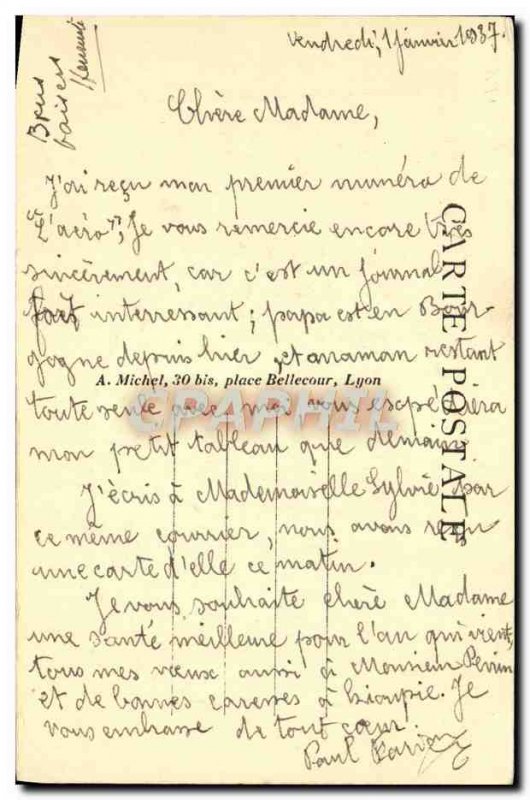 Vendredi, 1 janvier 1937.
Bons
baisers
Chère Madame,
J'ai reçu mon premier numéro de
"L'aéro"; Je vous remercie encore très
sincèrement, car c'est un journal
fort interressant; papa est en Bour-
gogne depuis hier, et maman restant
A. Michel, 30 bis, place Bellecour, Lyon
toute seule avec moi vous expédiera
CPAPHIL
mon petit tableau que demain
J'écris à Mademoiselle Sylvie par
ce même courrier, nous avons reçu
une carte d'elle ce matin.
Je vous souhaite chère Madame
une santé meilleure pour l'an qui vient,
tous mes vœux aussi à Monsieur Perrin
et de bonnes caresses à. Je
vous embrasse de tout cœur.
Paul
CARTE POSTALE